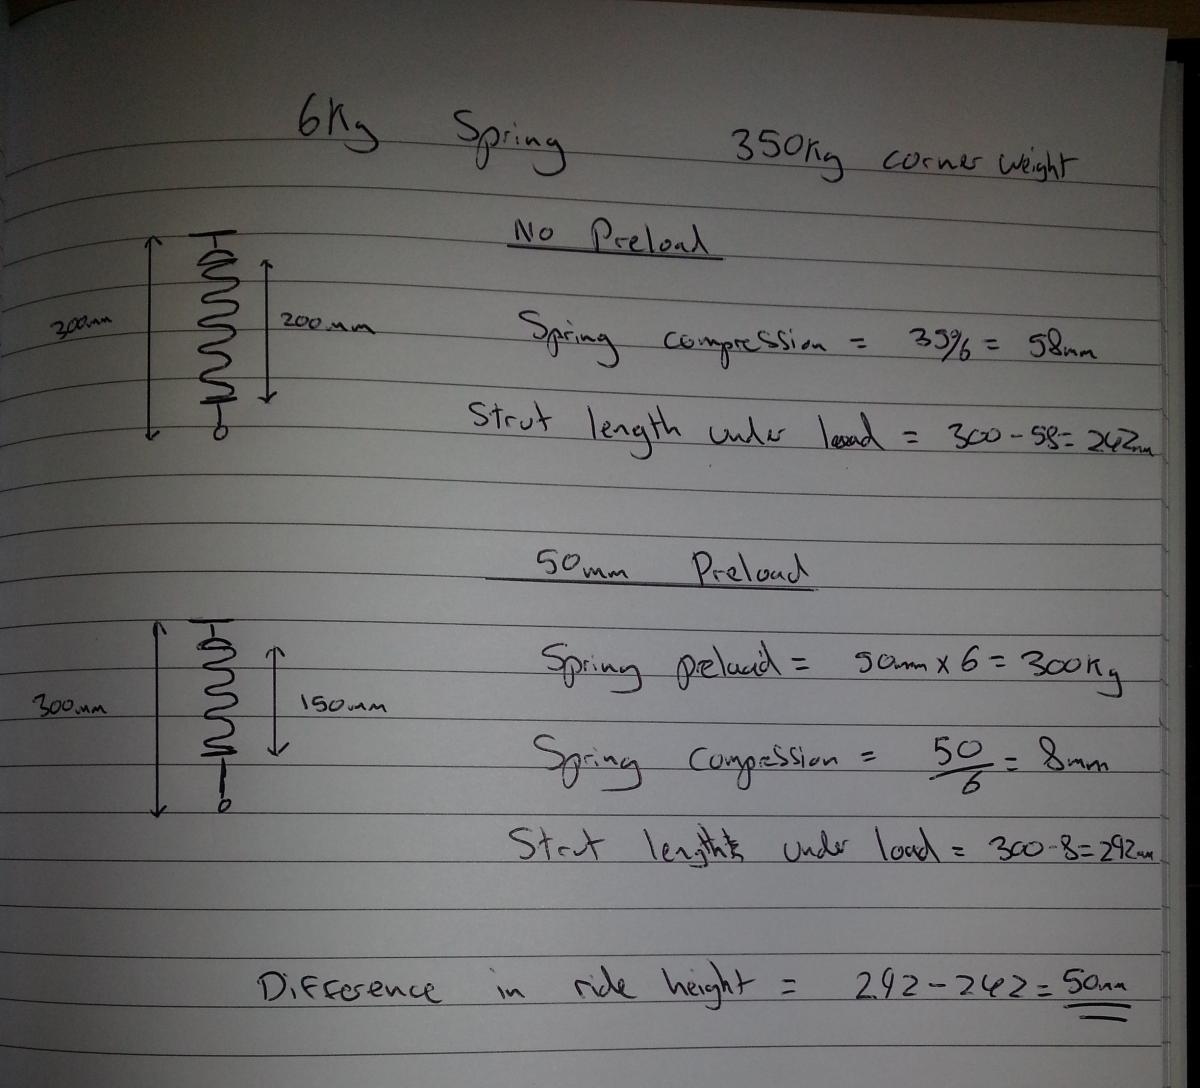 6Kg Spring 350Kg corner weight
No Preload
300mm
200mm
Spring compression = 350/6 = 58mm
Strut length under load = 300-58= 242mm
50mm Preload
300mm
150mm
Spring preload = 50mm x 6 = 300Kg
Spring Compression = 50/6 = 8mm
Strut length under load = 300-8=292mm
Difference in ride height = 292-242=50mm